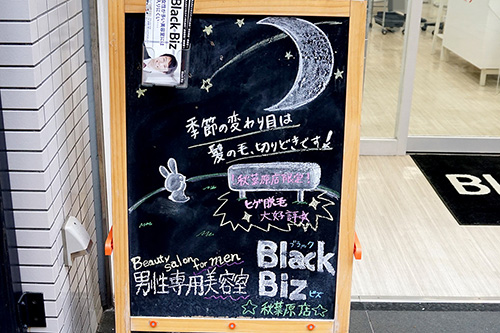 Black-Biz
季節の変わり目は
髪の毛、切りどきです!
秋葉原店限定!
ヒゲ脱毛
大好評☆
Beauty salon for men
男性専用美容室
Black
ブラック
Biz
ビズ
☆秋葉原店☆
BL